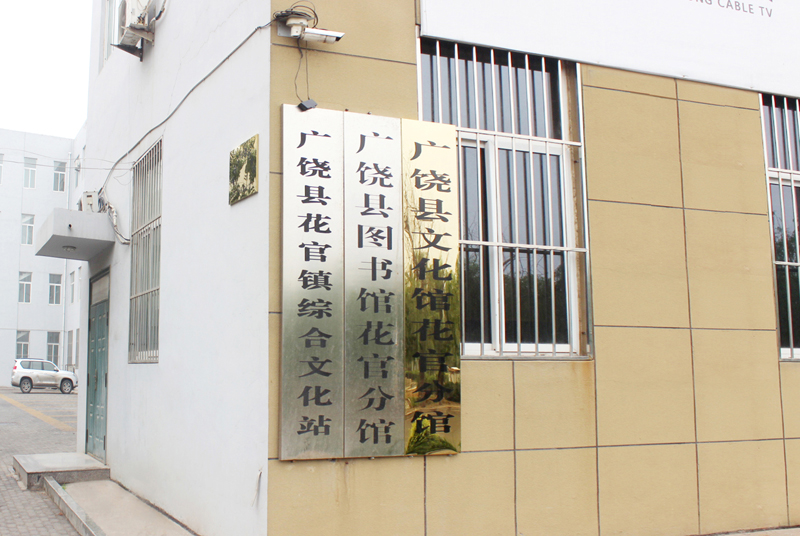 NG CABLE TV
广饶县花官镇综合文化站
广饶县图书馆花官分馆
广饶县文化馆花官分馆